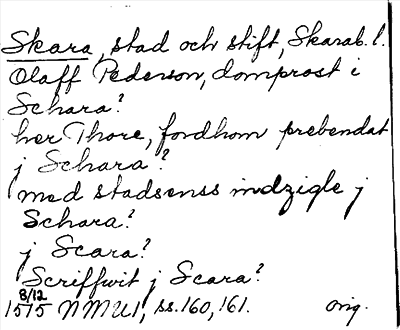 Skara, stad och stift, Skarab. l.
Olaff Pederson, domprost i
Schara?
her Thore, fordhom prebendat
j Schara?
med stadsenss indzigle j
Schara?
j Scara?
Scriffwit j Scara?
8/12
1515 NMU1, ss. 160, 161. orig.